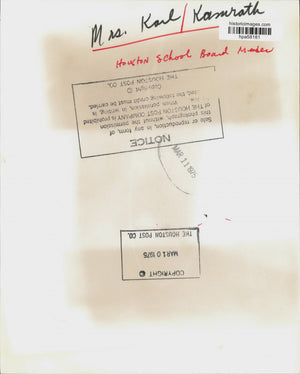 historicimages.com
hpa58181
Mrs. Karl / Kamrath
Houston School Board Member
NOTICE
Sale or reproduction, in any form, of
this photograph, without the permission
of THE HOUSTON POST COMPANY is prohibited
When permission, in writing, is
the following credit must be carried.
Copyright ©
THE HOUSTON POST CO.
MAR 11 1975
COPYRIGHT ©
MAR 10 1975
THE HOUSTON POST CO.